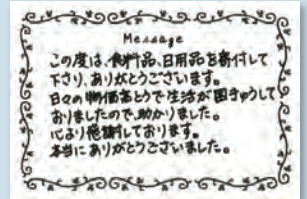 Message
この度は、食料品、日用品を寄付して
下さり、ありがとうございます。
日々の物価高とうで生活が困きゅうして
おりましたので、助かりました。
心より感謝しております。
本当にありがとうございました。